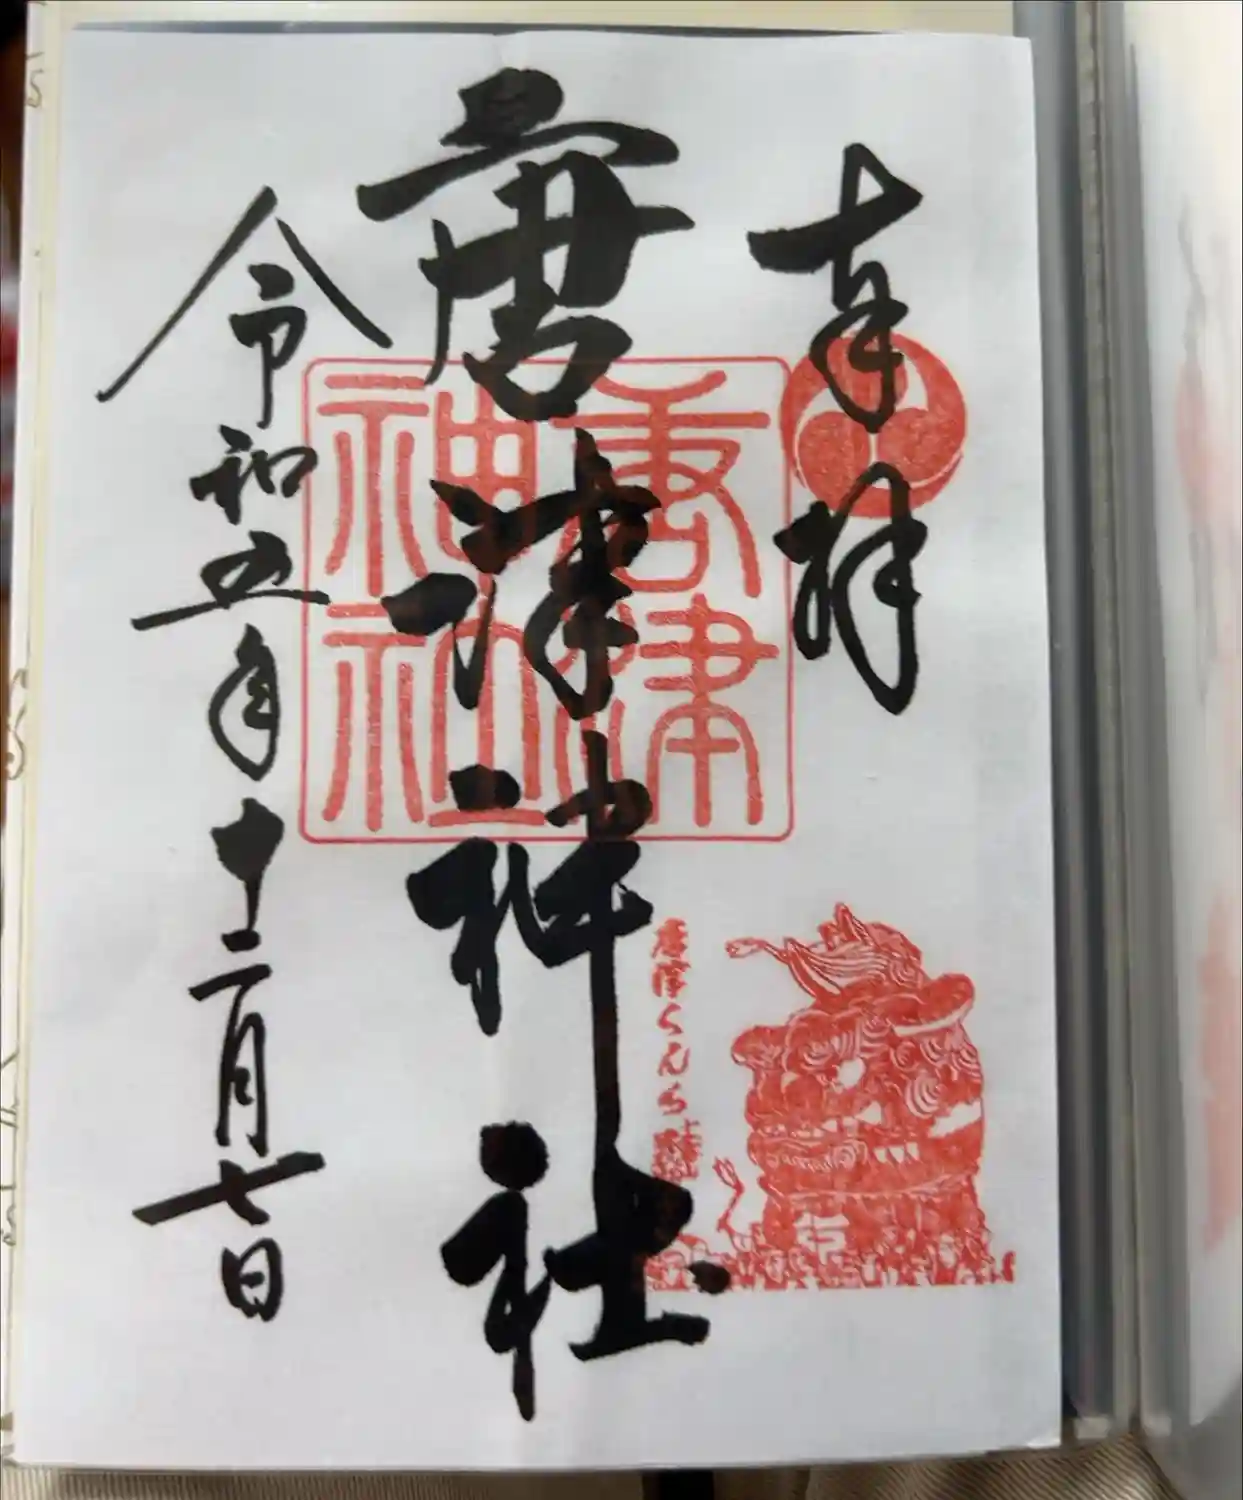 奉拝
唐津神社
令和五年十二月七日
唐津
神社
唐津くんち